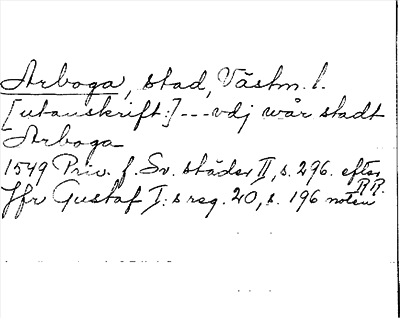 Arboga, stad, Västm. l.
[utanskrift:] --- vdj wår stadt
Arboga
1549 Priv. f. Sv. städer II, s. 296. efter RR.
Jfr Gustaf I:s reg. 20, s. 196 noten